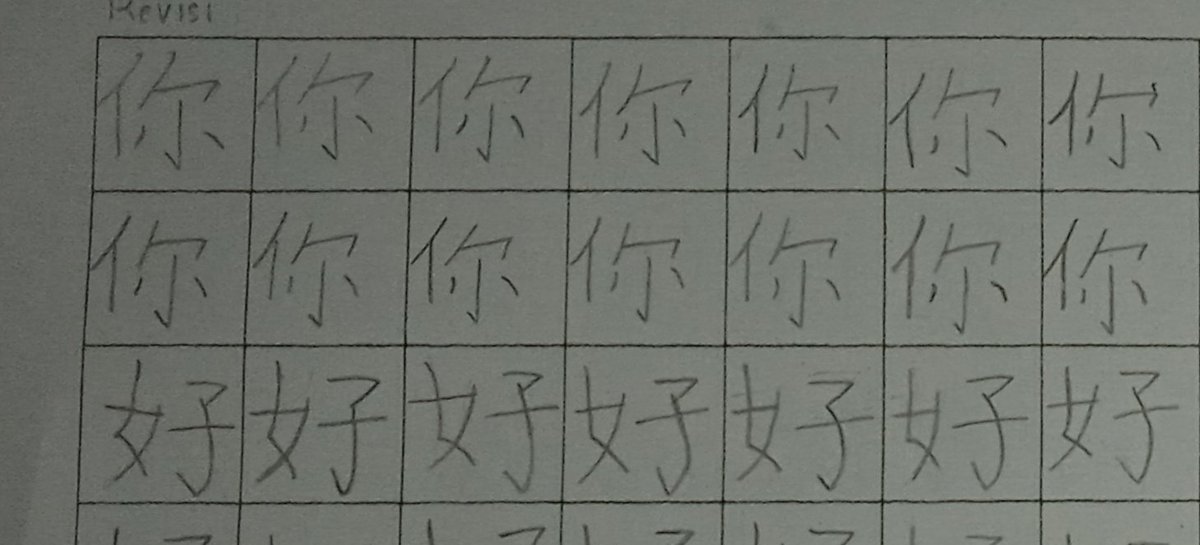 Revisi
你你你你你你你
你你你你你你你
好好好好好好好